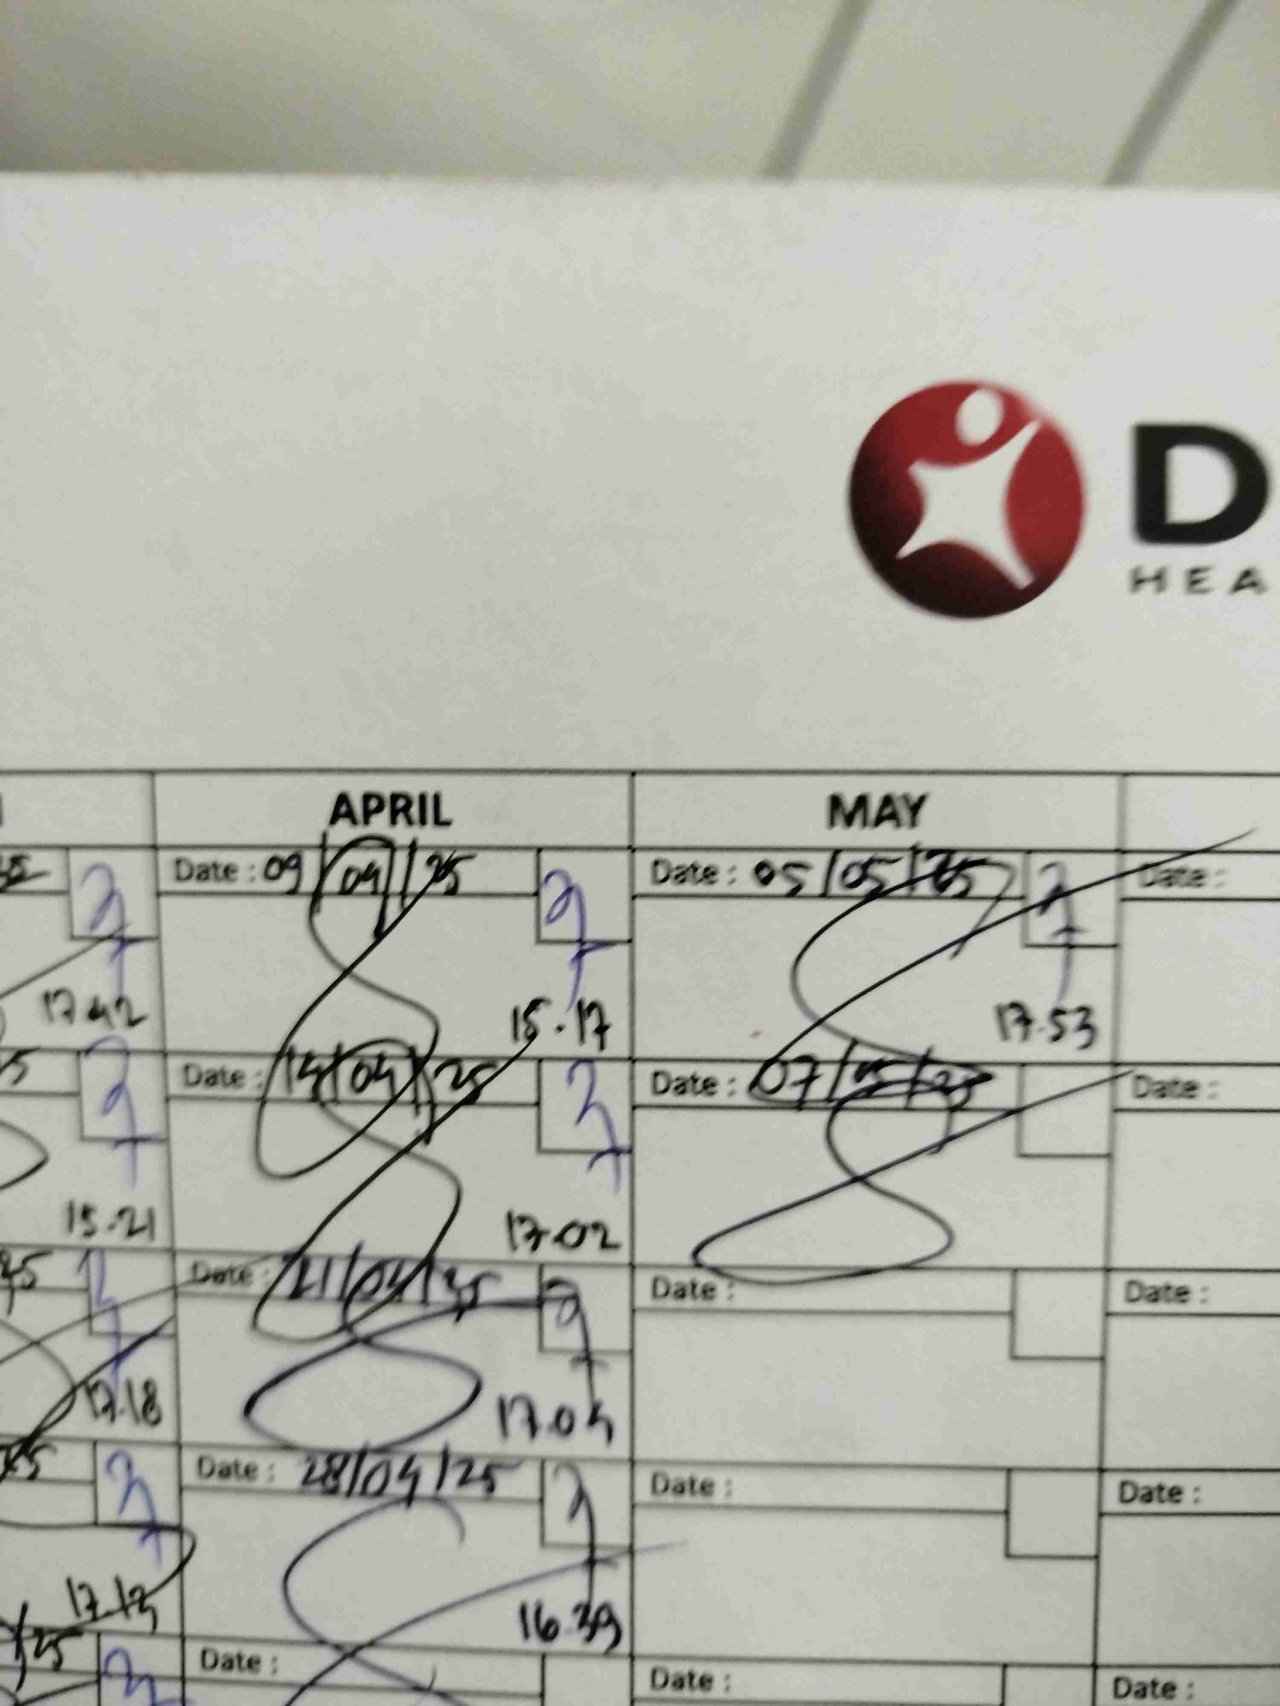 D
HEA
APRIL MAY
Date : 09/04/25 Date : 05/05/25 Date :
17.42 15.17 17.53
Date : 14/04/25 Date : 07/05/25 Date :
15.21 17.02
Date : 21/04/25 Date : Date :
17.18 17.04
Date : 28/04/25 Date : Date :
17.13 16.39
25 Date : Date : Date :